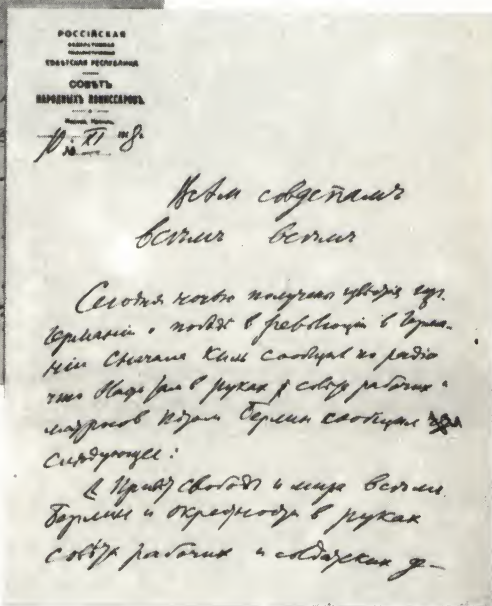 РОССІЙСКАЯ
ФЕДЕРАТИВНАЯ
СОВѢТСКАЯ РЕСПУБЛИКА
СОВѢТЪ
НАРОДНЫХЪ КОМИССАРОВЪ
Москва, Кремль
10 XI 1918 г.
Всѣм совдепамъ
всѣмъ всѣмъ
Сегодня ночью получены из
Германіи о побѣдѣ революціи в Герма-
ніи сначала Киль сообщил по радіо
что власть там в руках совѣта рабочих и
матросов потом Берлин сообщил
слѣдующее:
Привѣт свободы и мира всѣмъ
Берлин и окрестности в руках
совѣта рабочих и солдатских де-